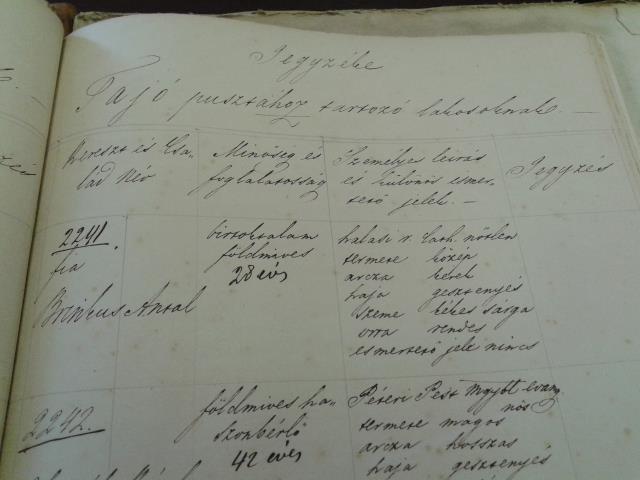 Jegyzéke
Tajó pusztához tartozó lakosoknak. —
Kereszt és Csa-
lád Név
Minőség és
foglalatosság
Személyes leirás
és különös ismer-
tető jelek. —
Jegyzés
2241.
fia
Brinkus Antal
birtoktalan
földmives
28 éves
halasi r. Cath. nőtlen
termete közép
arcza kerek
haja gesztenyés
szeme kékes sárga
orra rendes
esmertető jele nincs
2242.
földmives ha-
szonbérlő
42 éves
Péteri Pest Mgybl evang
nős
termete magos
arcza hosszas
haja gesztenyés